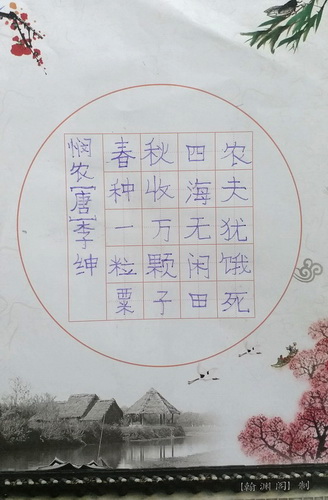 悯农[唐]李绅
春种一粒粟
秋收万颗子
四海无闲田
农夫犹饿死
【翰渊阁】制